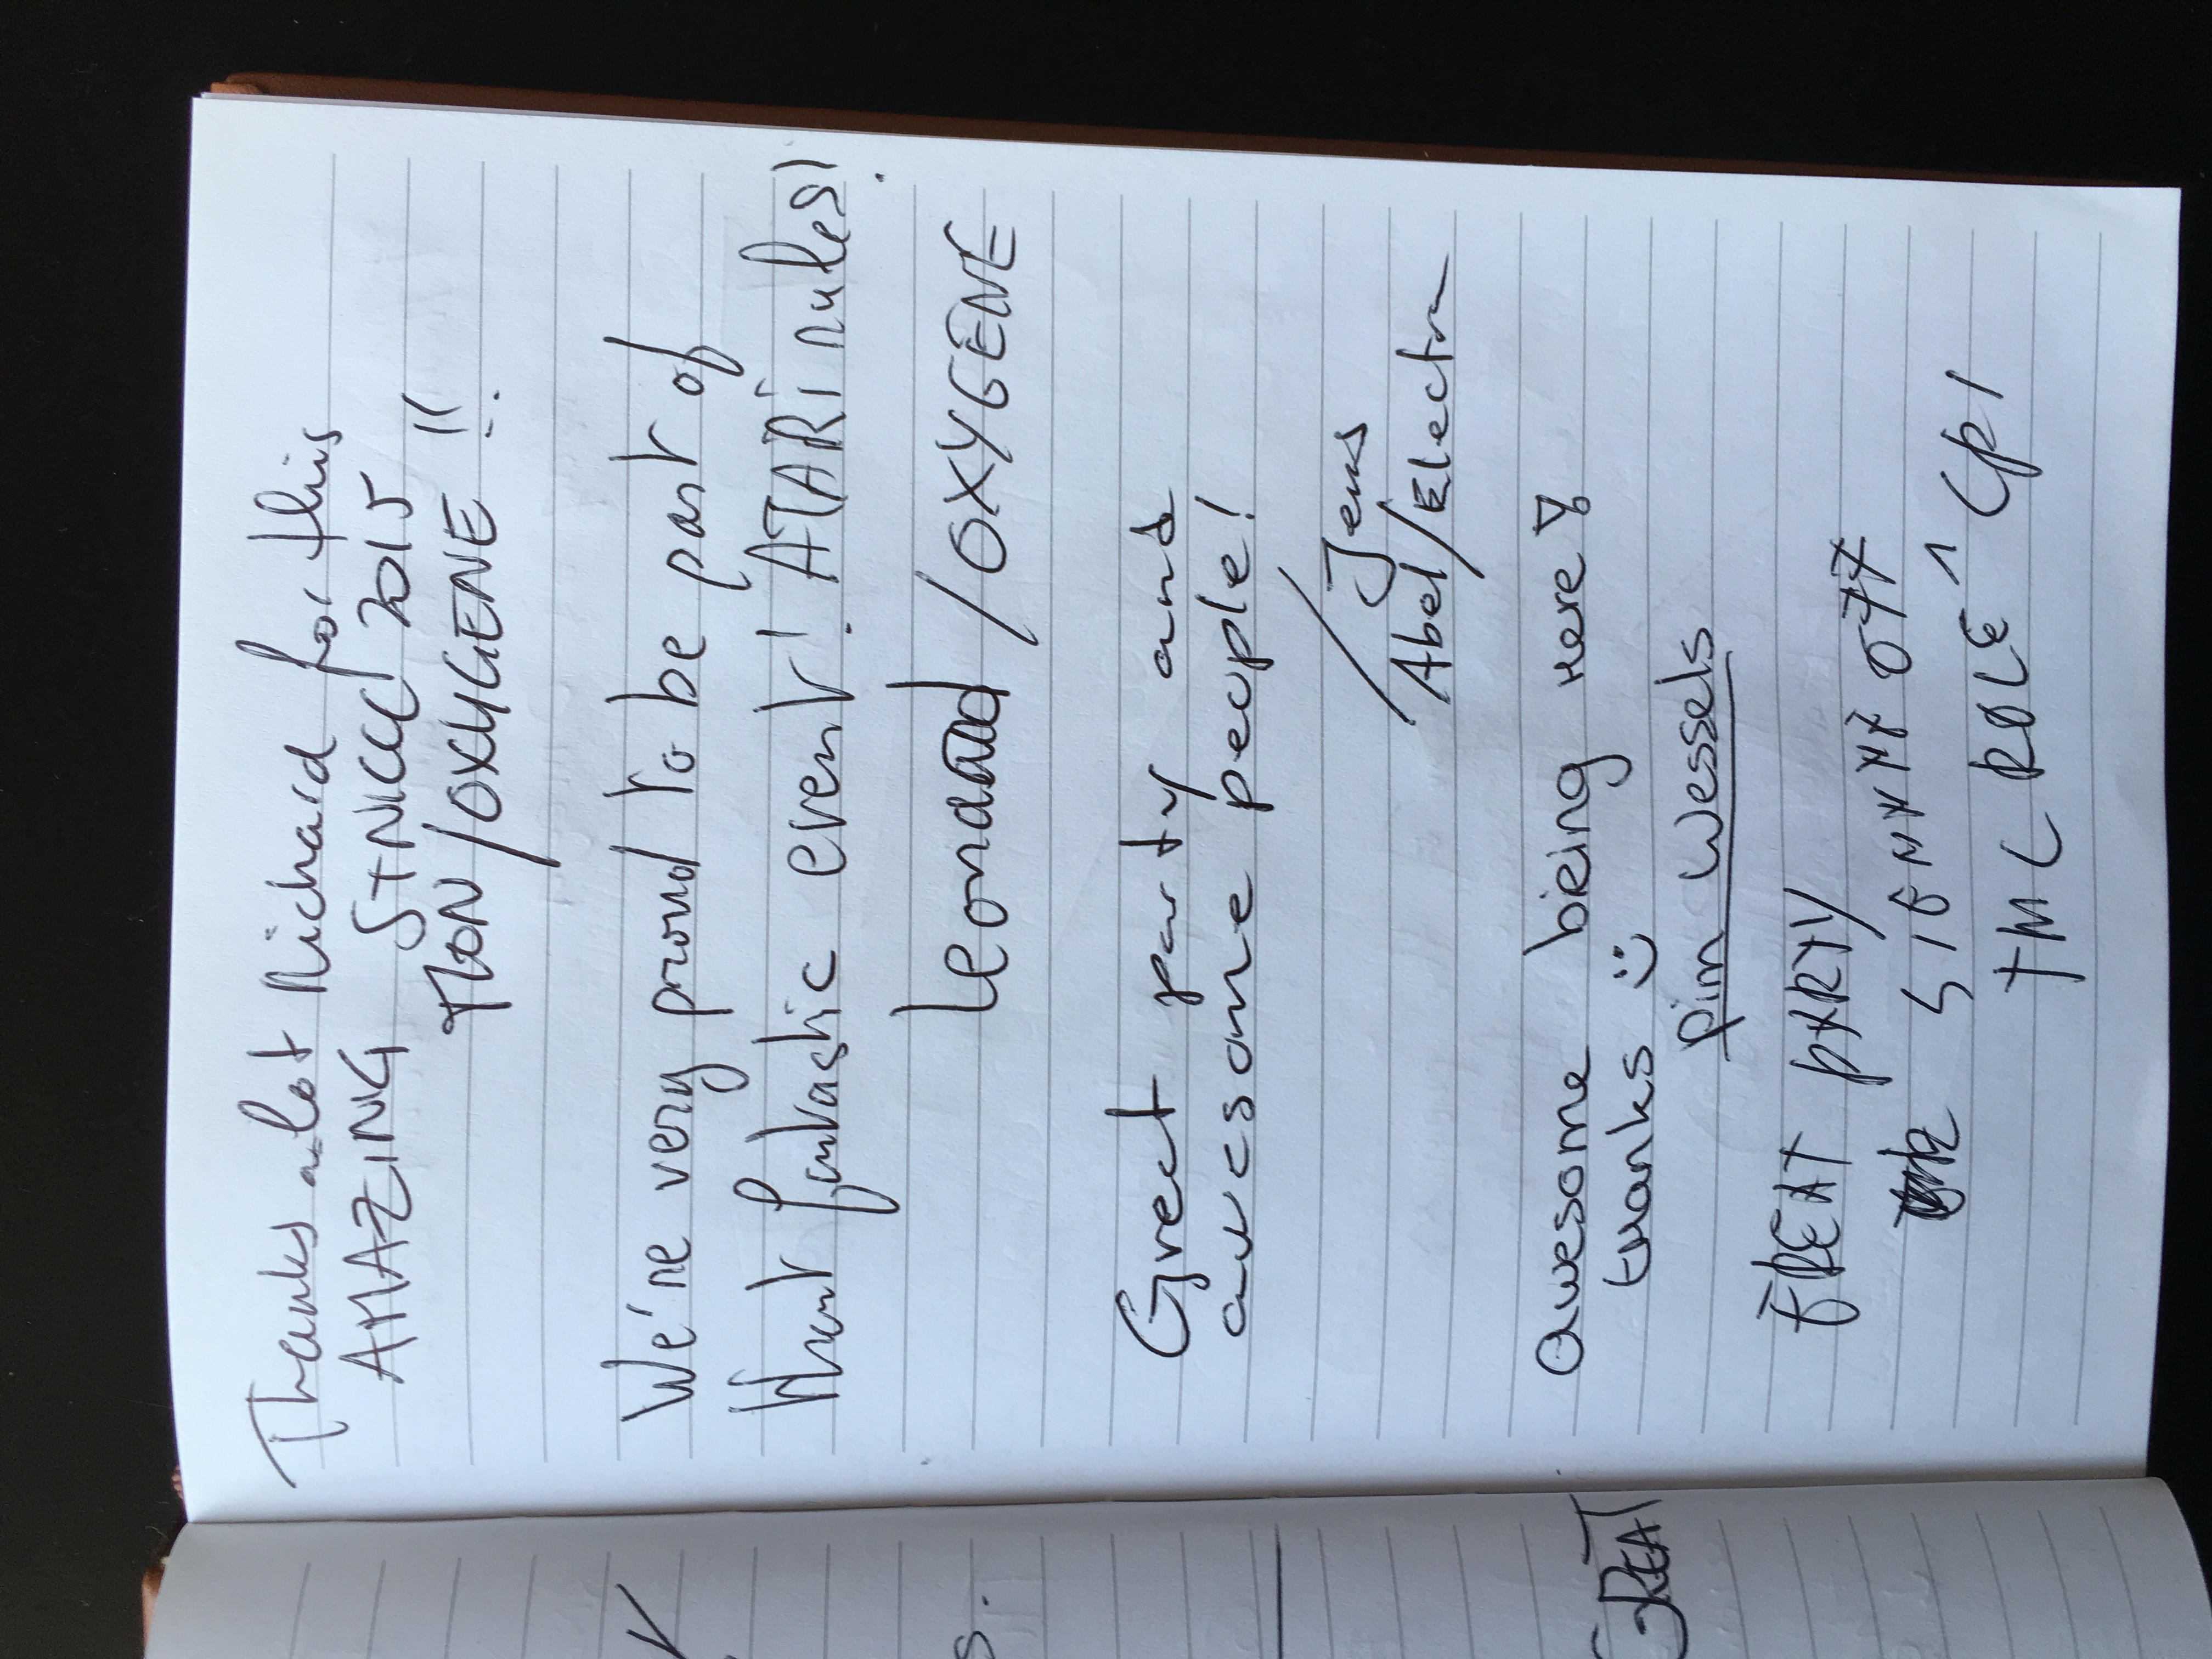 Thanks a lot Richard for this
AMAZING STNICCC 2015
MON/OXYGENE !!
We're very proud to be part of
that fantastic event! ATARI rules!
leonard /OXYGENE
Great party and
awesome people!
/Jens
Abel/Electra
Awesome being here!
thanks :)
Pim Wessels
GREAT PARTY
THC ROLE
GREAT